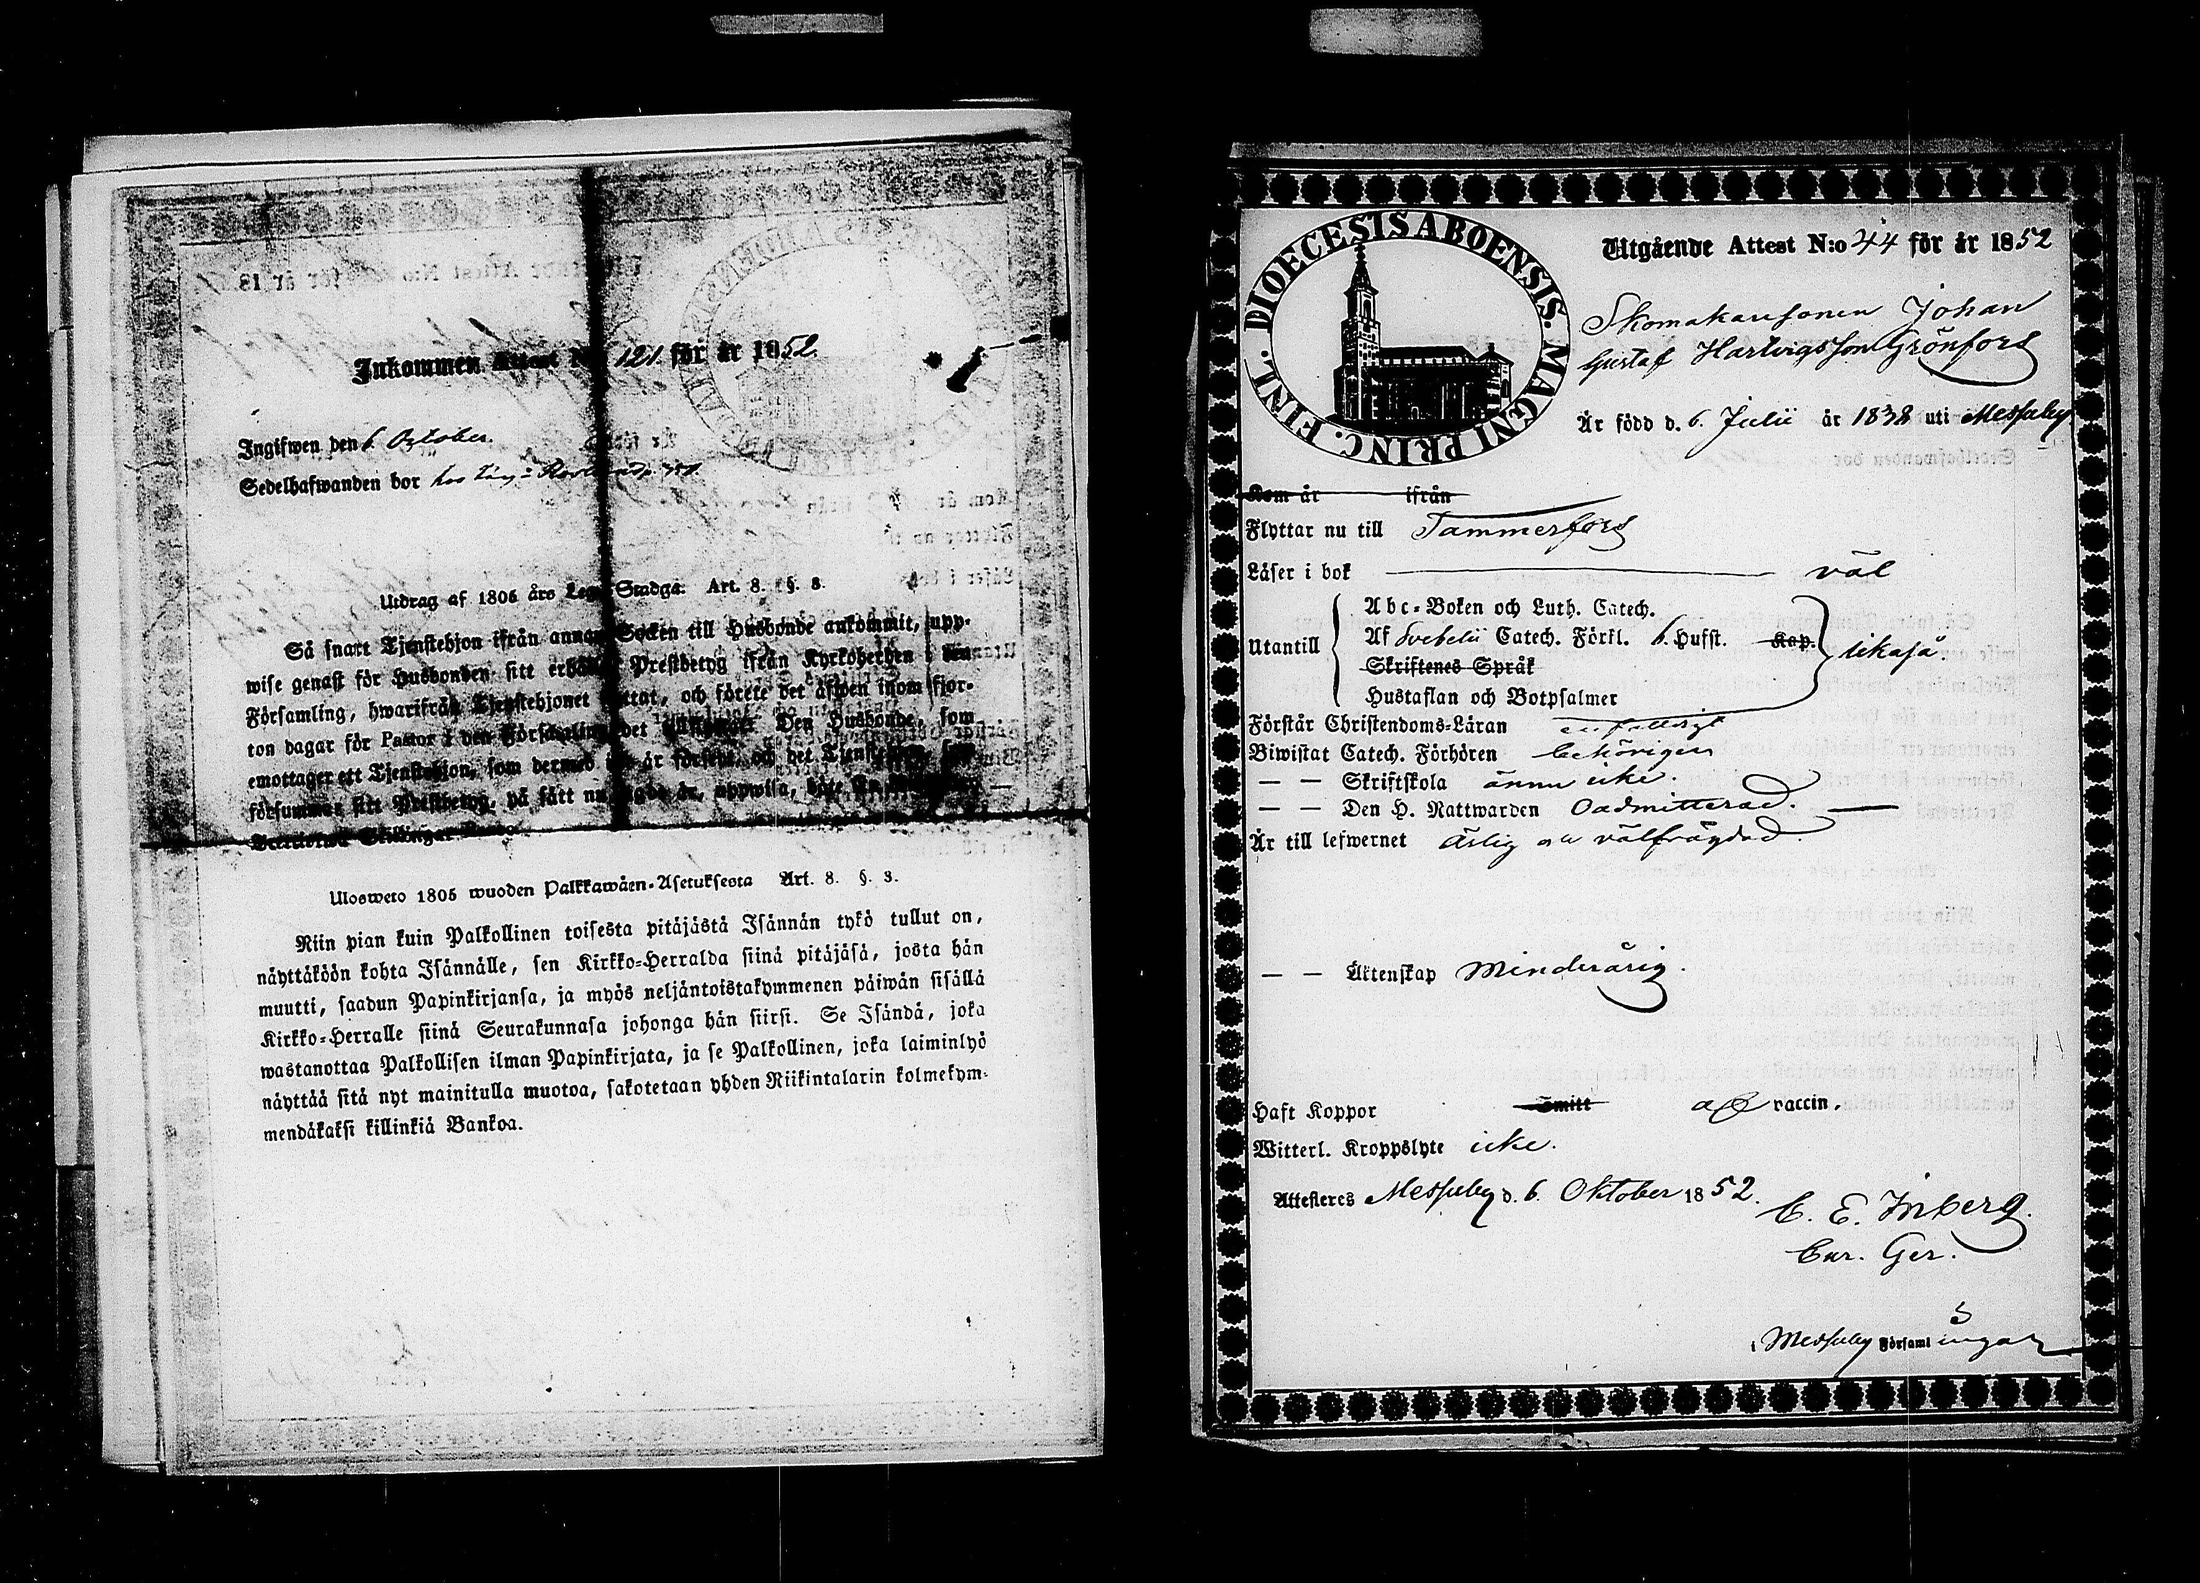 Inkommen Attest N:o 121 för år 1852.
Ingifwen den 6. October.
Sedelhafwanden bor hos
Utdrag af 1805 års Lego Stadga. Art. 8. §. 3.
Så snart Tjenstehjon ifrån annan Socken till Husbonde ankommit, upp-
wise genast för Husbonden sitt erhållna Prestbetyg ifrån Kyrkoherden i den
Församling, hwarifrån Tjenstehjonet flyttat, och förete det äfwen inom fjor-
ton dagar för Pastor i den Församling det inkommer. Den Husbonde, som
emottager ett Tjenstehjon, som dermed icke är försedt, och det Tjenstehjon, som
försummar sitt Prestbetyg, på sätt nu sagdt är, uppwisa, böte En Riksdaler —
Skillingar Banko.
Ulosweto 1805 wuoden Palkkawäen-Asetuksesta Art. 8. §. 3.
Niin pian kuin Palkollinen toisesta pitäjästä Isännän tykö tullut on,
näyttäköön kohta Isännälle, sen Kirkko-Herralda siinä pitäjäsä, josta hän
muutti, saadun Papinkirjansa, ja myös neljäntoistakymmenen päiwän sisällä
Kirkko-Herralle siinä Seurakunnasa johonga hän siirsi. Se Isändä, joka
wastanottaa Palkollisen ilman Papinkirjata, ja se Palkollinen, joka laiminlyö
näyttää sitä nyt mainitulla muotoa, sakotetaan yhden Riikintalarin kolmekym-
mendäkaksi killinkiä Bankoa.
DIOECESIS ABOENSIS. MAGNI PRINC. FINL.
Utgående Attest N:o 44 för år 1852
Skomakaresonen Johan
Gustaf Hartvigsson Grönfors
Är född d. 6. Julii år 1838 uti Messuby
Kom år ifrån
Flyttar nu till Tammerfors
Läser i bok väl
Utantill
Abc-Boken och Luth. Catech.
Af Svebelii Catech. Förkl. 6. Hufst. Kap.
likaså.
Skriftenes Språk
Hustaflan och Botpsalmer
Förstår Christendoms-Läran enfaldigt
Biwistat Catech. Förhören behörigen
— — Skriftskola ännu icke.
— — Den H. Nattwarden Oadmitterad. —
Är till lefwernet ärlig och välfrägdad.
— — Äktenskap Minderårig.
Haft Koppor Smitt af vaccin.
Witterl. Kroppslyte icke.
Attesteres Messuby d. 6. Oktober 1852.
C. E. Inberg.
Cur. Ger.
i Messuby Församlingar